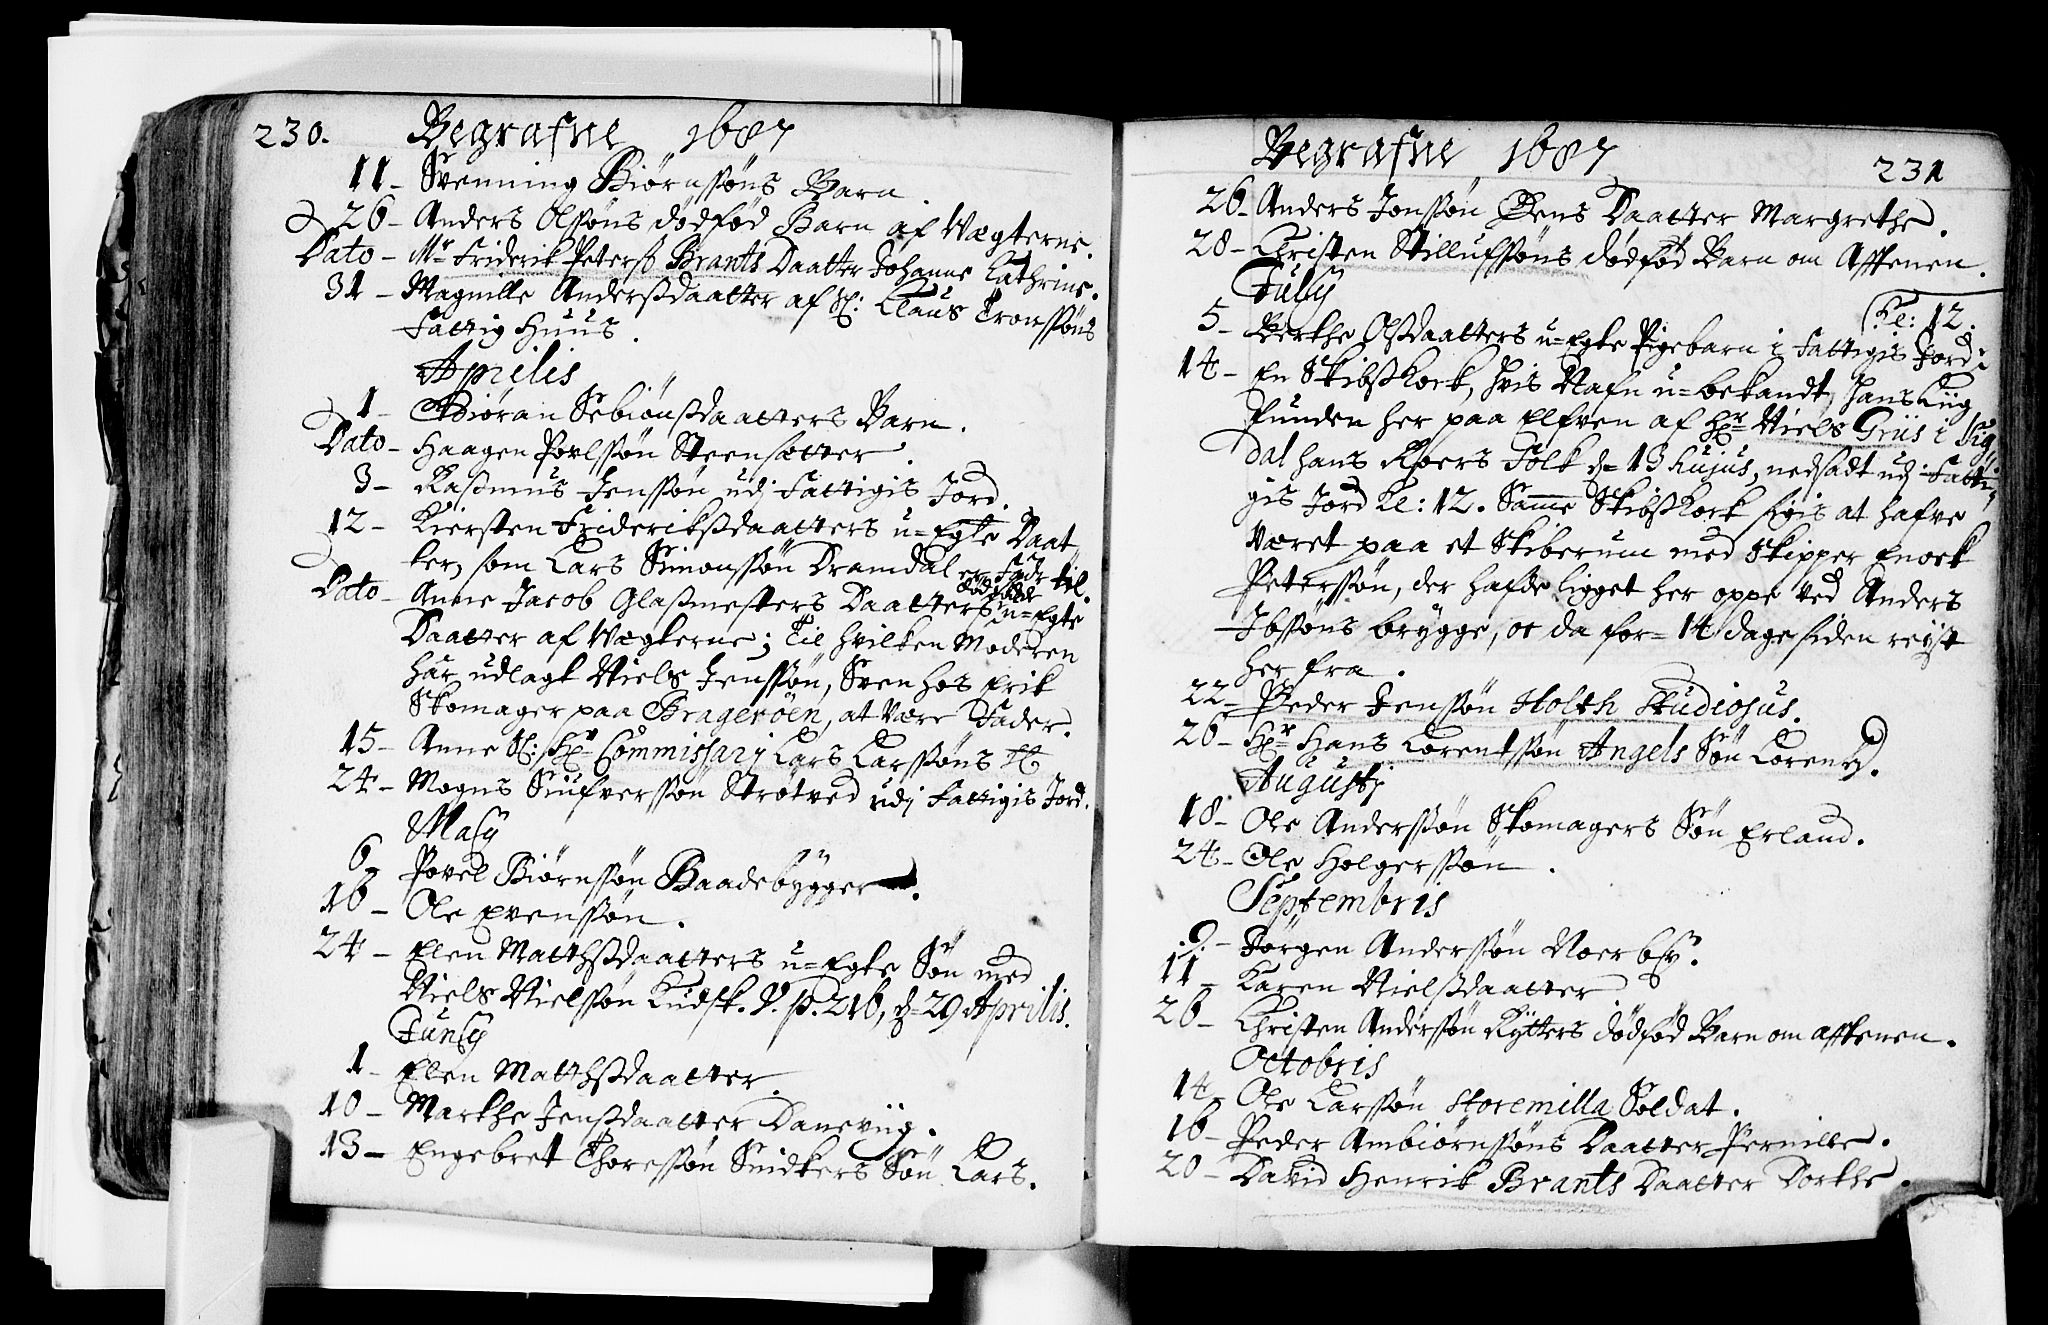 230. Begrafne 1687
11 - Svenning Biørnssøns Barn.
26 - Anders Olssøns dödföd Barn af Vægterne.
Dato - Mr Friderik Peterss Brants Daatter Johanne Cathrine.
31 - Magnille Anderssdaatter af Sl: Claus Tronssøns
Fattig Huus.
Aprilis
1 - Sebiønssdaatters Barn.
Dato - Haagen Povlssøn Steensætter.
3 - Rasmus Jenssøn udj Fattigis Jord.
12 - Kiersten Frideriksdaatters u=Egte Daat
ter, som Lars Simonssøn Dramdal er Fadr til.
Dato - Anne Jacob Glassmesters Daatters dödföde u=Egte
Daatter af Vægterne; Til hvilken Moderen
har udlagt Niels Jenssøn, Sven hos Erik
Skomager paa Bragerøen, at være Fader.
15 - Anne Sl: Hr Commissarj Lars Larssøns
24 - Mogns Siufverssøn Strøtved udj Fattigis Jord.
Maij
6 - Povel Biørnssøn Baadebygger.
16 - Ole Evenssøn.
24 - Elen Matthssdaatters u=Egte Søn med
Niels Nielssøn Kudsk. V. p. 216, d= 29 Aprilis.
Junij
1 - Elen Matthssdaatter.
10 - Marthe Jenssdaatter Daneviig.
13 - Engebret Thoressøn Snidkers Søn Lars.
Begrafne 1687 231
26 - Anders Jonssøn Daatter Margrethe.
28 - Christen Stillufssøns dödföd Barn om Afftenen.
July
Kl: 12.
5 - Berthe Olssdaatters u=Egte Pigebarn i Fattigis Jord
14 - En Skibsskock, hvis Nafn u=bekandt, hans Liig
funden her paa Elfven af Hr Niels Griis i Sig
dal hans Roers Folk d= 13 hujus, nedsadt udj Fatti
gis Jord Kl: 12. Samme Skibsskock sigis at hafve
været paa et Skiberum med Skipper Enock
Peterssøn, der hafde ligget her oppe ved Anders
Ibssøns brygge, oc da for= 14 dage siden reist
her fra.
22 - Peder Jenssøn Holth Studiosus.
26 - Hr Hans Lorentssøn Angels Søn Lorentz.
Augustj
18 - Ole Anderssøn Skomagers Søn Erland.
24 - Ole Holgerssøn.
Septembris
9 - Jørgen Anderssøn Noerbÿ.
11 - Karen Nielssdaatter
26 - Christen Anderssøn Rytters dödföd Barn om afftenen.
Octobris
14 - Ole Larssøn Storemilla Soldat.
16 - Peder Ambiørnssøns Daatter Pernille.
20 - David Henrik Brants Daatter Dorthe.